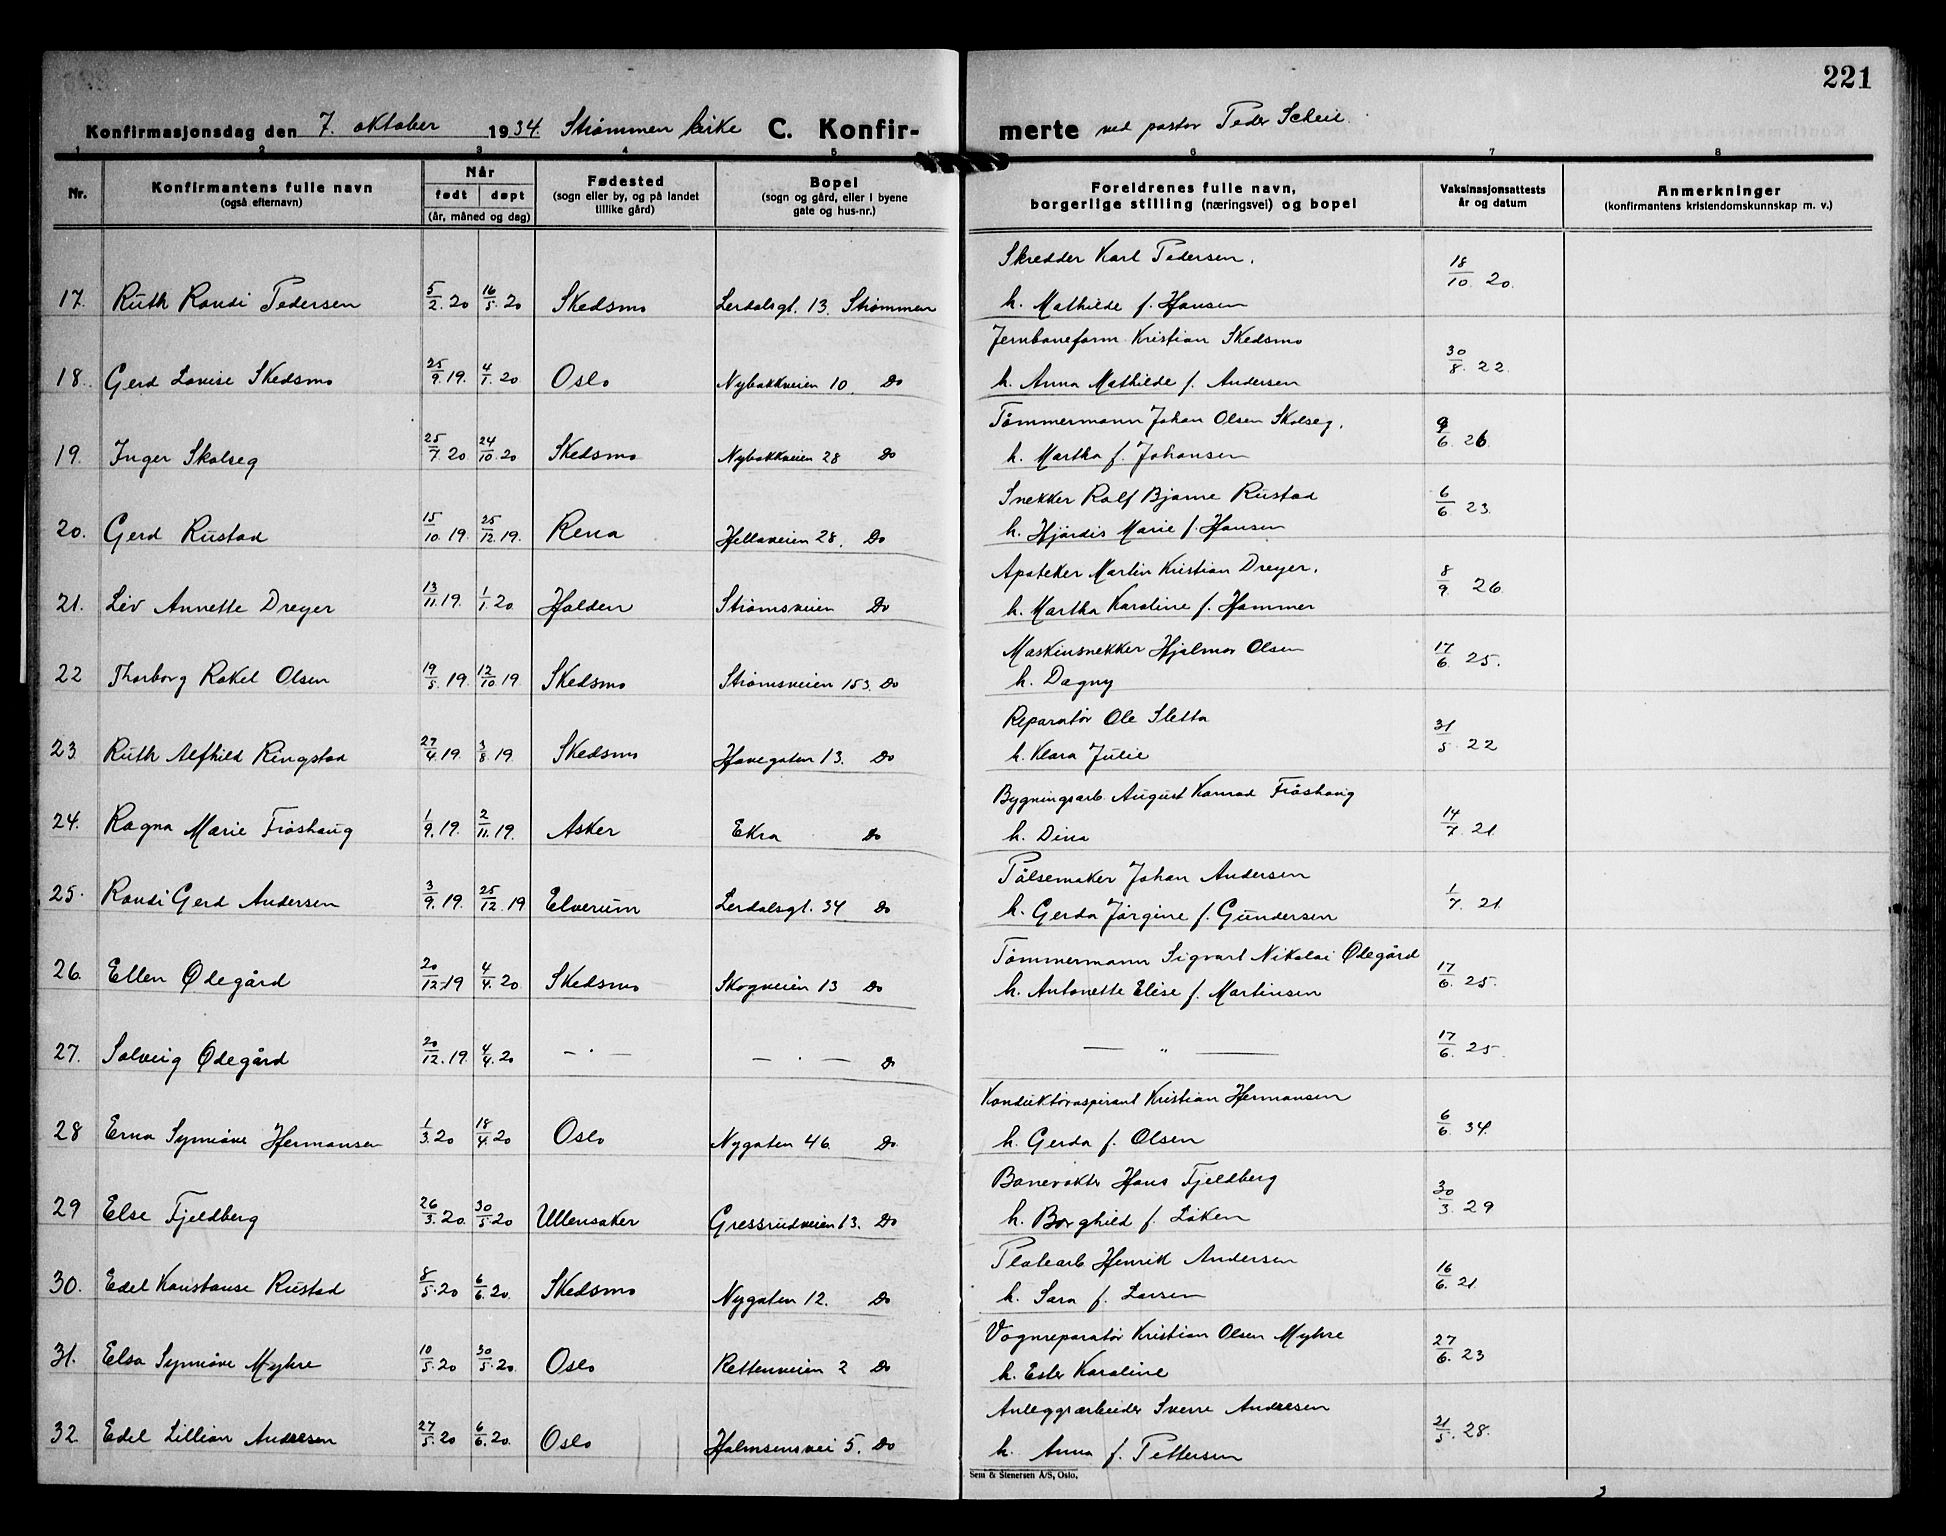 221
Konfirmasjonsdag den 7. oktober 1934. Strømmen kirke C. Konfirmerte ved pastor Peder Scheie.
1 2 3 4 5 6 7 8
Nr. Konfirmantens fulle navn (også efternavn) Når født døpt (år, måned og dag) Fødested (sogn eller by, og på landet tillike gård) Bopel (sogn og gård, eller i byene gate og hus-nr.) Foreldrenes fulle navn, borgerlige stilling (næringsvei) og bopel Vaksinasjonsattests år og datum Anmerkninger (konfirmantens kristendomskunnskap m. v.)
Skredder Karl Pedersen,
17. Ruth Randi Pedersen 5/2. 20 16/5. 20 Skedsmo Lerdalsgt. 13. Strømmen h. Mathilde f. Hansen 18/10. 20.
Jernbaneform. Kristian Skedsmo
18. Gerd Lovise Skedsmo 25/9. 19. 4/1. 20 Oslo Nybakkveien 10. Do h. Anna Mathilde f. Andersen 30/8. 22.
Tømmermann Johan Olsen Skolseg,
19. Inger Skolseg 25/7. 20 24/10. 20 Skedsmo Nybakkveien 28 Do h. Martha f. Johansen 9/6. 26
Snekker Ralf Bjarne Rustad
20. Gerd Rustad 15/10. 19. 25/12. 19. Rena Hellaveien 28. Do h. Hjørdis Marie f. Hansen 6/6. 23.
Apoteker Martin Kristian Dreyer,
21. Liv Annette Dreyer 13/11. 19. 1/1. 20 Halden Strømsveien Do h. Martha Karoline f. Hammer 8/9 26
Maskinsnekker Hjalmar Olsen
22 Thorborg Rakel Olsen 19/5. 19. 12/10. 19. Skedsmo Strømsveien 153. Do h. Dagny 17/6. 25.
Reparatør Ole Sletta
23 Ruth Alfhild Ringstad 27/4. 19 3/8. 19. Skedsmo Havegaten 13. Do h. Klara Julie 31/5 22
Bygningsarb. August Konrad Frøshaug
24. Ragna Marie Frøshaug 1/9. 19. 2/11. 19. Asker Ekra Do h. Dina 14/7. 21.
Pølsemaker Johan Andersen
25. Randi Gerd Andersen 3/9. 19. 25/12. 19 Elverum Lerdalsgt. 34 Do h. Gerda Jørgine f. Gundersen 1/7. 21.
Tømmermann Sigvart Nikolai Ødegård
26. Ellen Ødegård 20/12. 19 4/4. 20 Skedsmo Skogveien 13 Do h. Antonette Elise f. Martinsen 17/6. 25.
27. Solveig Ødegård 20/12. 19. 4/4. 20 — · — — · — Do — " — 17/6. 25.
Konduktøraspirant Kristian Hermansen
28 Erna Synnøve Hermansen 1/3. 20 18/4. 20 Oslo Nygaten 46. Do h. Gerda f. Olsen 6/6. 34.
Banevokter Hans Fjeldberg
29 Else Fjeldberg 26/3. 20. 30/5. 20 Ullensaker Gressrudveien 13. Do h. Borghild f. Løken 30/3. 29
Platearb. Henrik Andersen
30. Edel Konstanse Rustad 8/5. 20 6/6. 20. Skedsmo Nygaten 12. Do h. Sara f. Larsen 16/6. 21
Vognreparatør Kristian Olsen Myhre
31. Elsa Synnøve Myhre 10/5. 20 30/5. 20. Oslo Rettenveien 2 Do h. Ester Karoline 27/6. 23
Anleggsarbeider Sverre Andresen
32. Edel Lillian Andresen 27/5. 20 6/6. 20. Oslo Holmsensvei 5. Do h. Anna f. Pettersen 21/5. 28.
Sem & Stenersen A/S, Oslo.